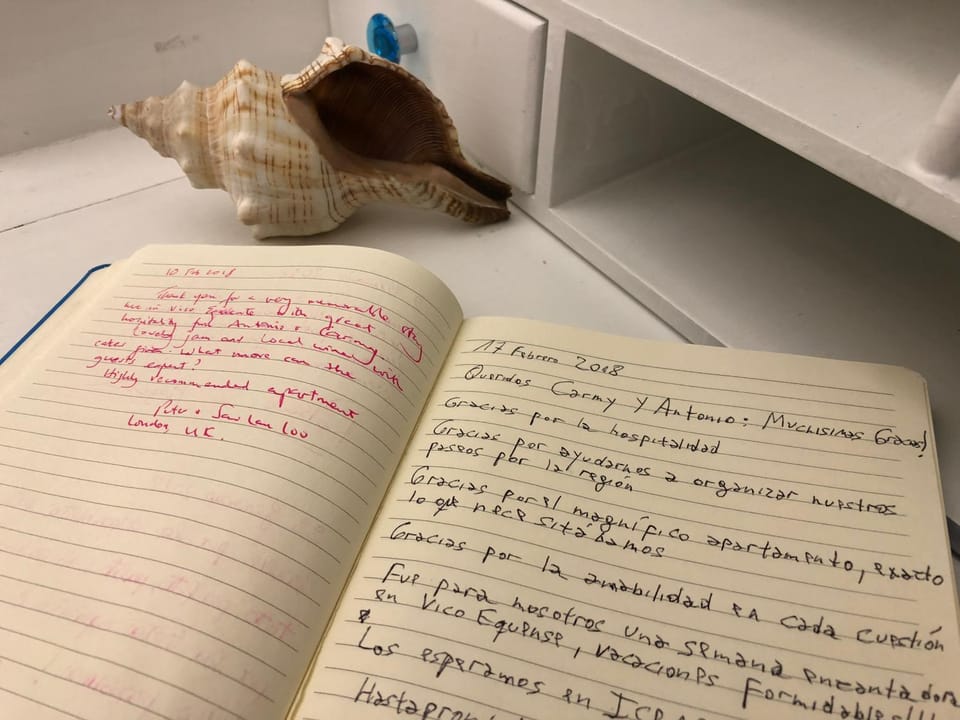 10 Feb 2018
Thank you for a very memorable stay
here in Vico Equense with great
hospitality from Antonio & Carmy.
Lovely jam and local wine, with
cake from. What more can the
guests expect?
Highly recommended apartment
Peter & Saw Lan Loo
London, UK.
17 Febrero 2018
Queridos Carmy y Antonio: Muchisimas Gracias!
Gracias por la hospitalidad
Gracias por ayudarnos a organizar nuestros
paseos por la región
Gracias por el magnífico apartamento, exacto
lo que necesitábamos
Gracias por la amabilidad en cada cuestión
Fue para nosotros una semana encantadora
en Vico Equense, vacaciones formidable
Los esperamos en
Hasta